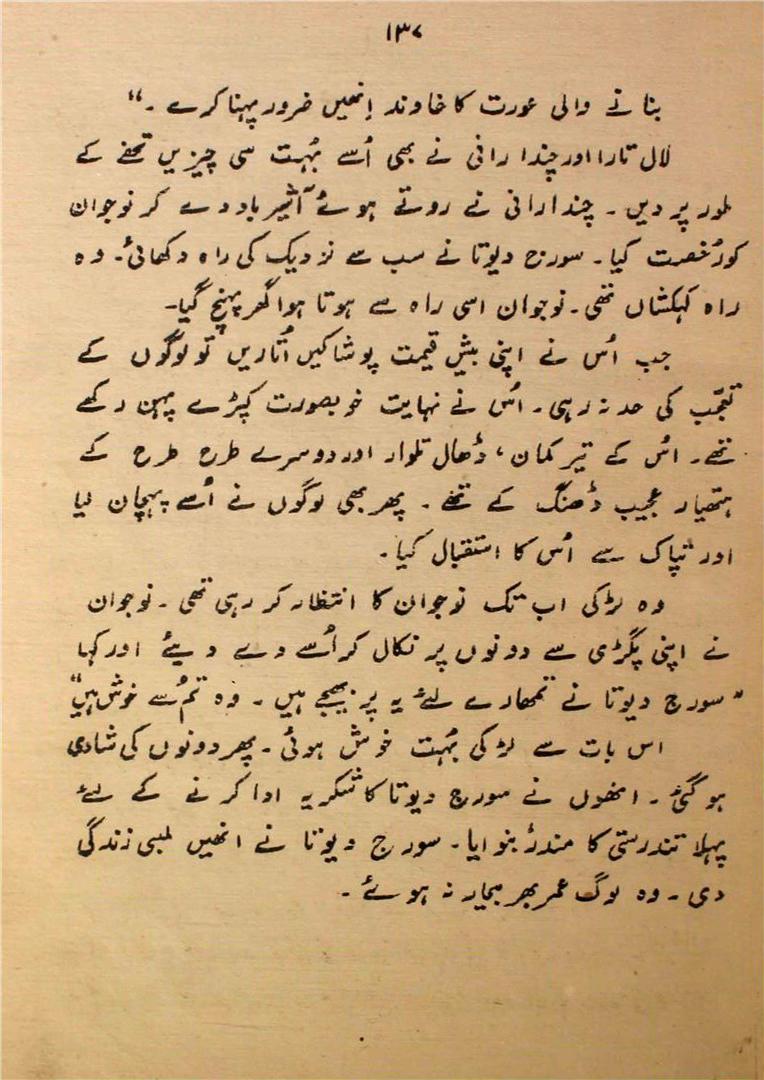 ۱۳۷
بنانے والی عورت کا خاوند اِنھیں ضرور پہنا کرے ۔“
لال تارا اور چندا رانی نے بھی اُسے بُہت سی چیزیں تحفے کے
طور پر دیں ۔ چندا رانی نے روتے ہوئے آشیرباد دے کر نوجوان
کو رُخصت کیا ۔ سورج دیوتا نے سب سے نزدیک کی راہ دکھائی ۔ وہ
راہ کہکشاں تھی ۔ نوجوان اسی راہ سے ہوتا ہوا گھر پہنچ گیا ۔
جب اُس نے اپنی بیش قیمت پوشاکیں اُتاریں تو لوگوں کے
تعجّب کی حد نہ رہی ۔ اُس نے نہایت خوبصورت کپڑے پہن رکھے
تھے ۔ اُس کے تیر کمان ، ڈھال تلوار اور دوسرے طرح طرح کے
ہتھیار عجیب ڈھنگ کے تھے ۔ پھر بھی لوگوں نے اُسے پہچان لیا
اور تپاک سے اُس کا استقبال کیا ۔
وہ لڑکی اب تک نوجوان کا انتظار کر رہی تھی ۔ نوجوان
نے اپنی پگڑی سے دونوں پر نکال کر اُسے دے دیئے اور کہا
”سورج دیوتا نے تمھارے لئے یہ پر بھیجے ہیں ۔ وہ تم سے خوش ہیں“
اس بات سے لڑکی بُہت خوش ہوئی ۔ پھر دونوں کی شادی
ہو گئی ۔ انھوں نے سورج دیوتا کا شکریہ ادا کرنے کے لئے
پہلا تندرستی کا مندر بنوایا ۔ سورج دیوتا نے انھیں لمبی زندگی
دی ۔ وہ لوگ عمر بھر بیمار نہ ہوئے ۔